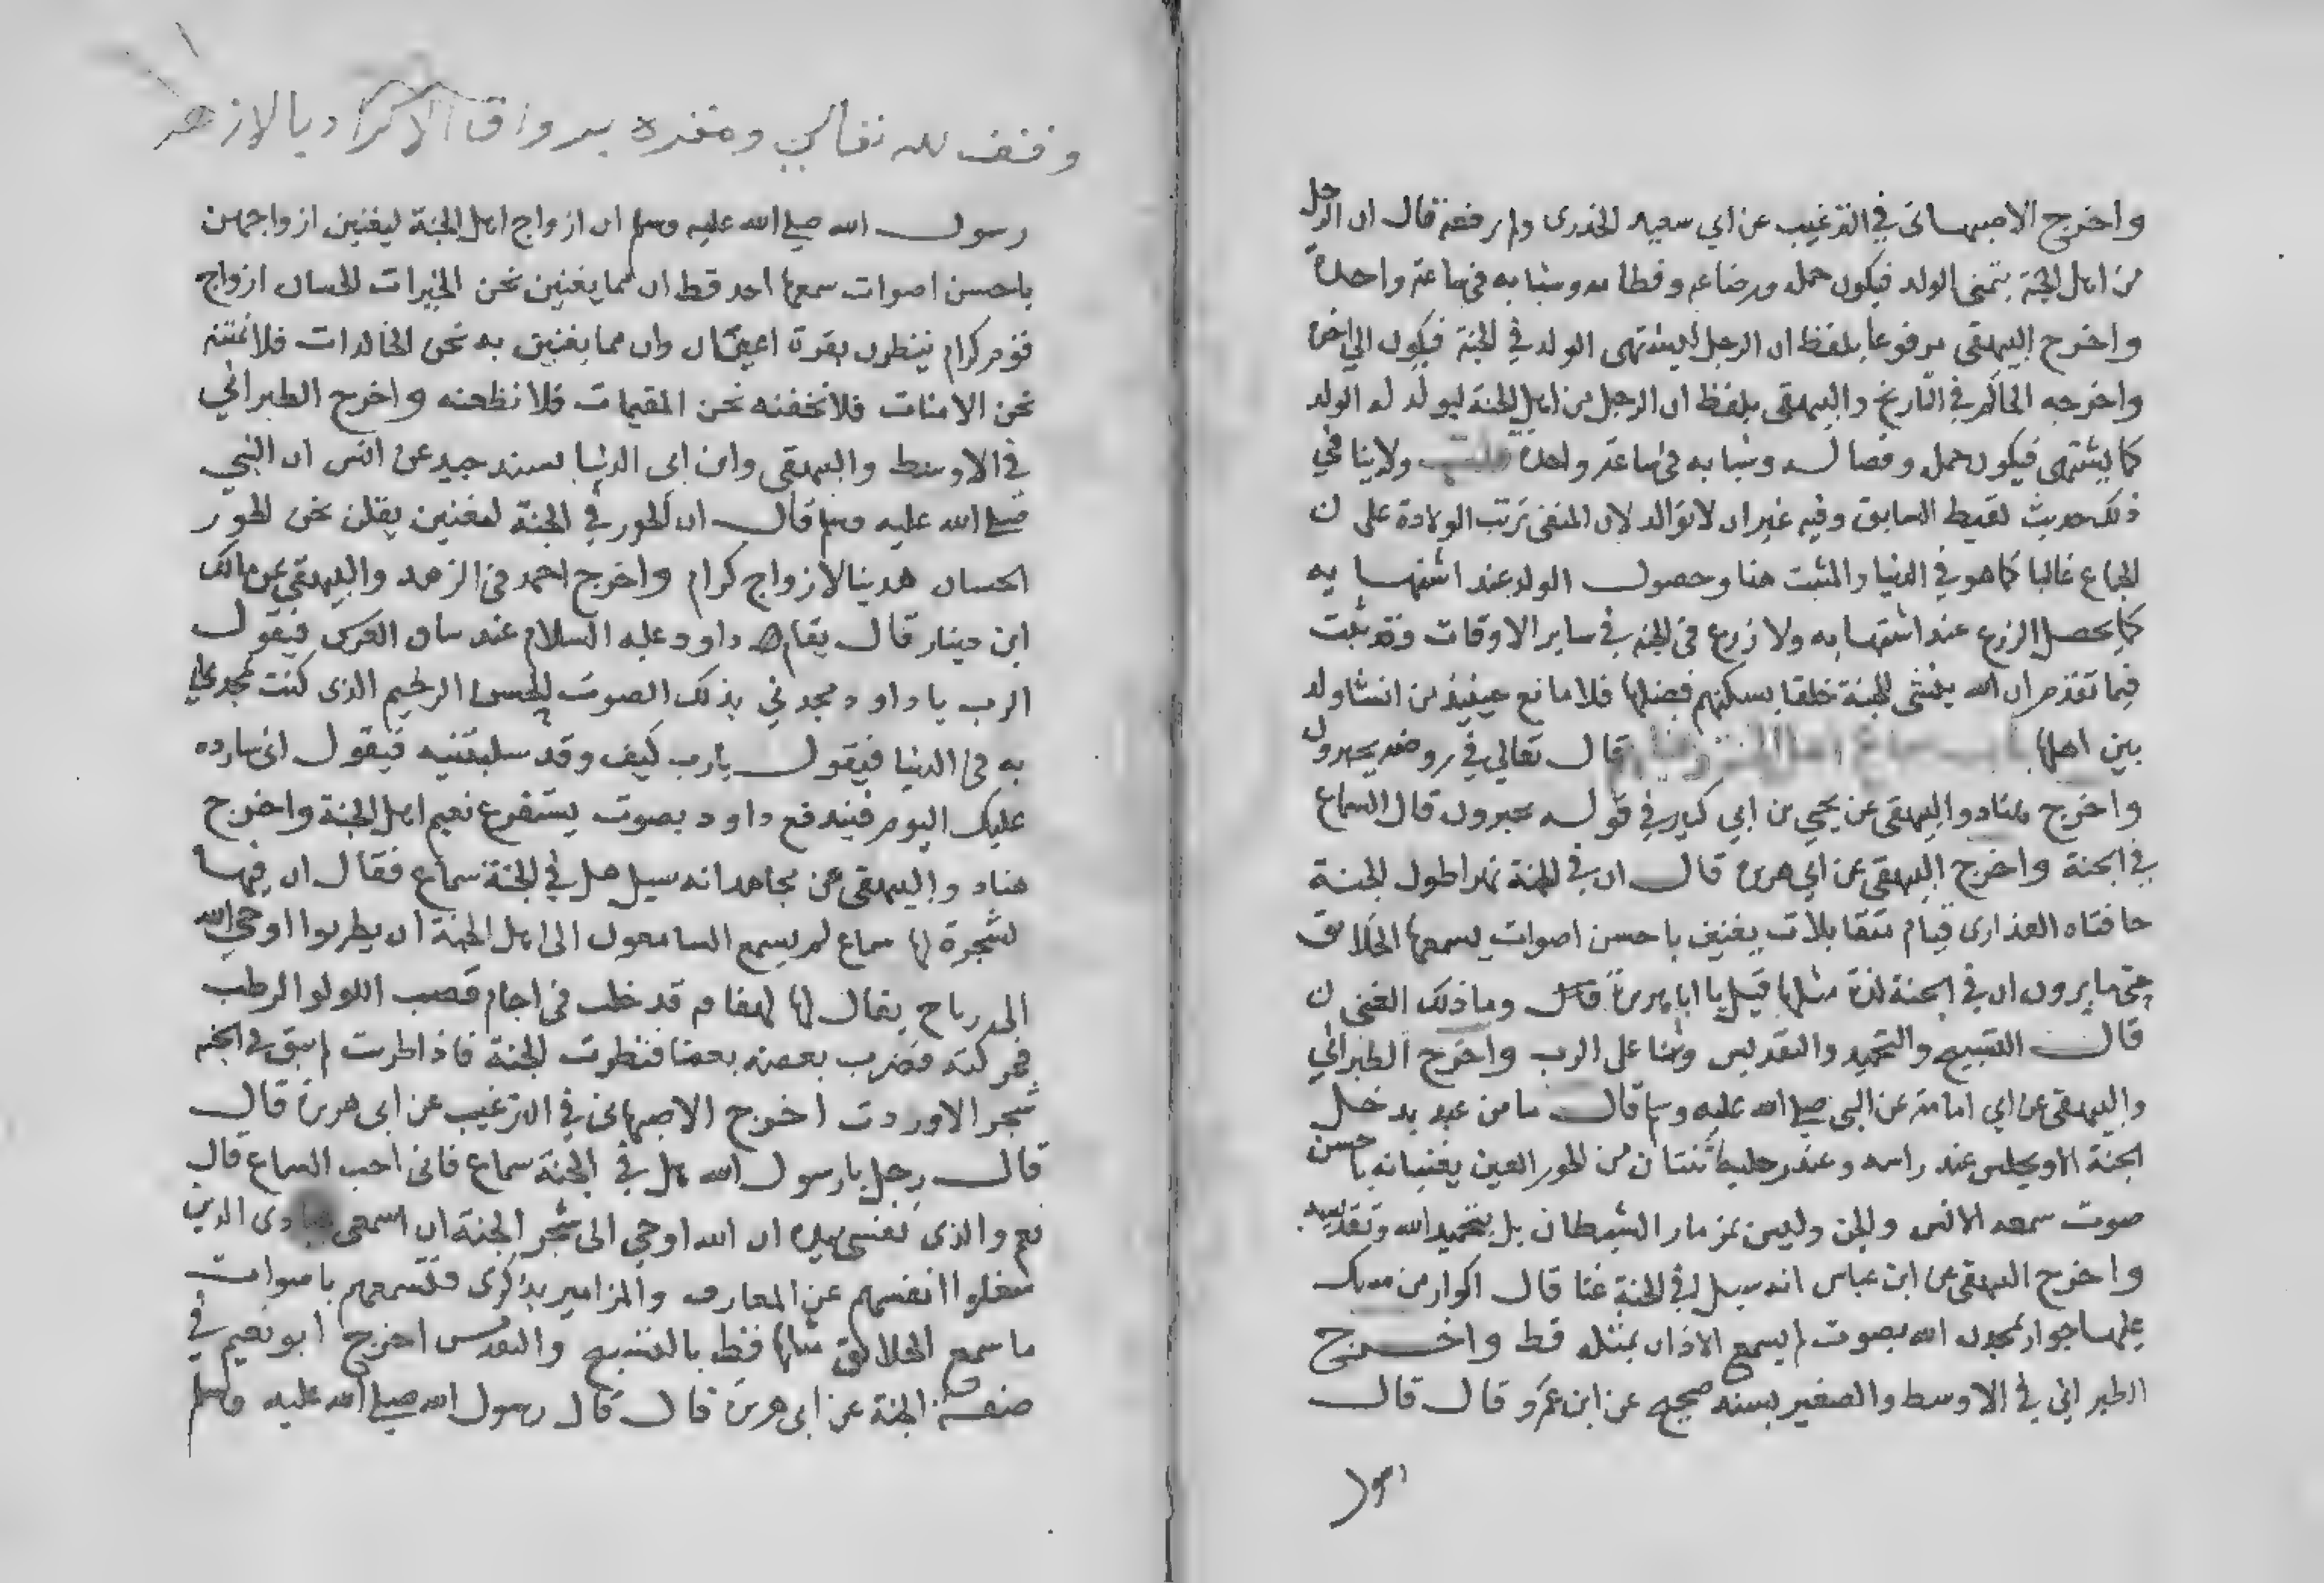 واخرج الاصبهانى فى الترغيب عن ابي سعيد الخدرى ولم يرفعه قال ان الرجل
من اهل الجنة يتمنى الولد فيكون حمله ورضاعه وفطامه وشبابه فى ساعة واحدة
واخرج البيهقى مرفوعا بلفظ ان الرجل ليشتهى الولد في الجنة فيكون الي اخره
واخرجه الحاكم في التاريخ والبيهقى بلفظ ان الرجل من اهل الجنة ليولد له الولد
كما يشتهى فيكون حمله وفصاله وشبابه فى ساعة واحدة قلت ولا ينافي
ذلك حديث لقيط السابق وفيه غير ان لا توالد لان المنفى ترتب الولادة على
الجماع غالبا كما هو في الدنيا والمثبت هنا وحصول الولد عند اشتهايه
كما يحصل الزرع عند اشتهايه ولا زرع فى الجنة في ساير الاوقات وقد ثبت
فيما تقدم ان الله ينشى للجنة خلقا يسكنهم فضلها فلا مانع حينيذ من انشا ولد
بين اهلها باب سماع اهل الجنة قال تعالي في روضة يحبرون
واخرج هناد والبيهقى عن يحيي بن ابي كثير في قوله يحبرون قال السماع
في الجنة واخرج البيهقى عن ابي هريرة قال ان في الجنة نهرا طول الجنة
حافتاه العذارى قيام متقابلات يغنين باحسن اصوات يسمعها الخلايق
حتى ما يرون ان في الجنة لذة مثلها قيل يا ابا هريرة وما ذلك الغنى
قال التسبيح والتحميد والتقديس وثنا على الرب واخرج الطبراني
والبيهقى عن ابي امامة عن النبى صلى الله عليه وسلم قال ما من عبد يدخل
الجنة الا ويجلس عند راسه وعند رجليه ثنتان من الحور العين يغنيانه باحسن
صوت سمعه الانس والجن وليس بمزمار الشيطان بل بتحميد الله وتقديسه
واخرج البيهقى عن ابن عباس انه سيل افي الجنة غنا قال اكوار من مسك
عليها جوار يمجدن الله بصوت لم يسمع الاذان بمثله قط واخرج
الطبراني في الاوسط والصغير بسند صحيح عن ابن عمر قال قال
وقف لله تعالي ومقره برواق الاكراد بالازهر
رسول الله صلى الله عليه وسلم ان ازواج اهل الجنة ليغنين ازواجهن
باحسن اصوات سمعها احد قط ان مما يغنين نحن الخيرات الحسان ازواج
قوم كرام ينظرن بقرة اعيان وان مما يغنين به نحن الخالدات فلا نمتنه
نحن الامنات فلا نخفنه نحن المقيمات فلا نظعنه واخرج الطبراني
في الاوسط والبيهقى وابن ابى الدنيا بسند جيد عن انس ان النبي
صلى الله عليه وسلم قال ان الحور في الجنة لمغنين يقلن نحن الحور
الحسان هدينا لازواج كرام واخرج احمد فى الزهد والبيهقي عن مالك
ابن دينار قال يقام داود عليه السلام عند ساق العرش فيقول
الرب يا داود مجدني بذلك الصوت الحسن الرخيم الذى كنت تمجدنى
به فى الدنيا فيقول يارب كيف وقد سلبتنيه فيقول انى ساراده
عليك اليوم فيندفع داود بصوت يستفرغ نعيم اهل الجنة واخرج
هناد والبيهقى عن مجاهد انه سيل هل في الجنة سماع فقال ان فيها
لشجرة لها سماع لم يسمع السامعون الى
يقال لها قصب اللولو الرطب
فحركته فضرب بعضه بعضا فتطرب الجنة فاذا طربت لم يبق فى الجنه
شجر الا وردت اخرج الاصبهانى في الترغيب عن ابى هريرة قال
قال رجل يا رسول الله هل في الجنة سماع فانى احب السماع قال
نعم والذى نفسى بيده ان الله اوحي الى شجر الجنة ان اسمعى عبادى الذين
شغلوا انفسهم عن المعازف والمزامير بذكرى فتسمعهم باصوات
ما سمع الخلايق مثلها قط بالتسبيح والتقديس اخرج ابو نعيم في
صفة الجنة عن ابى هريرة قال قال رسول الله صلى الله عليه وسلم